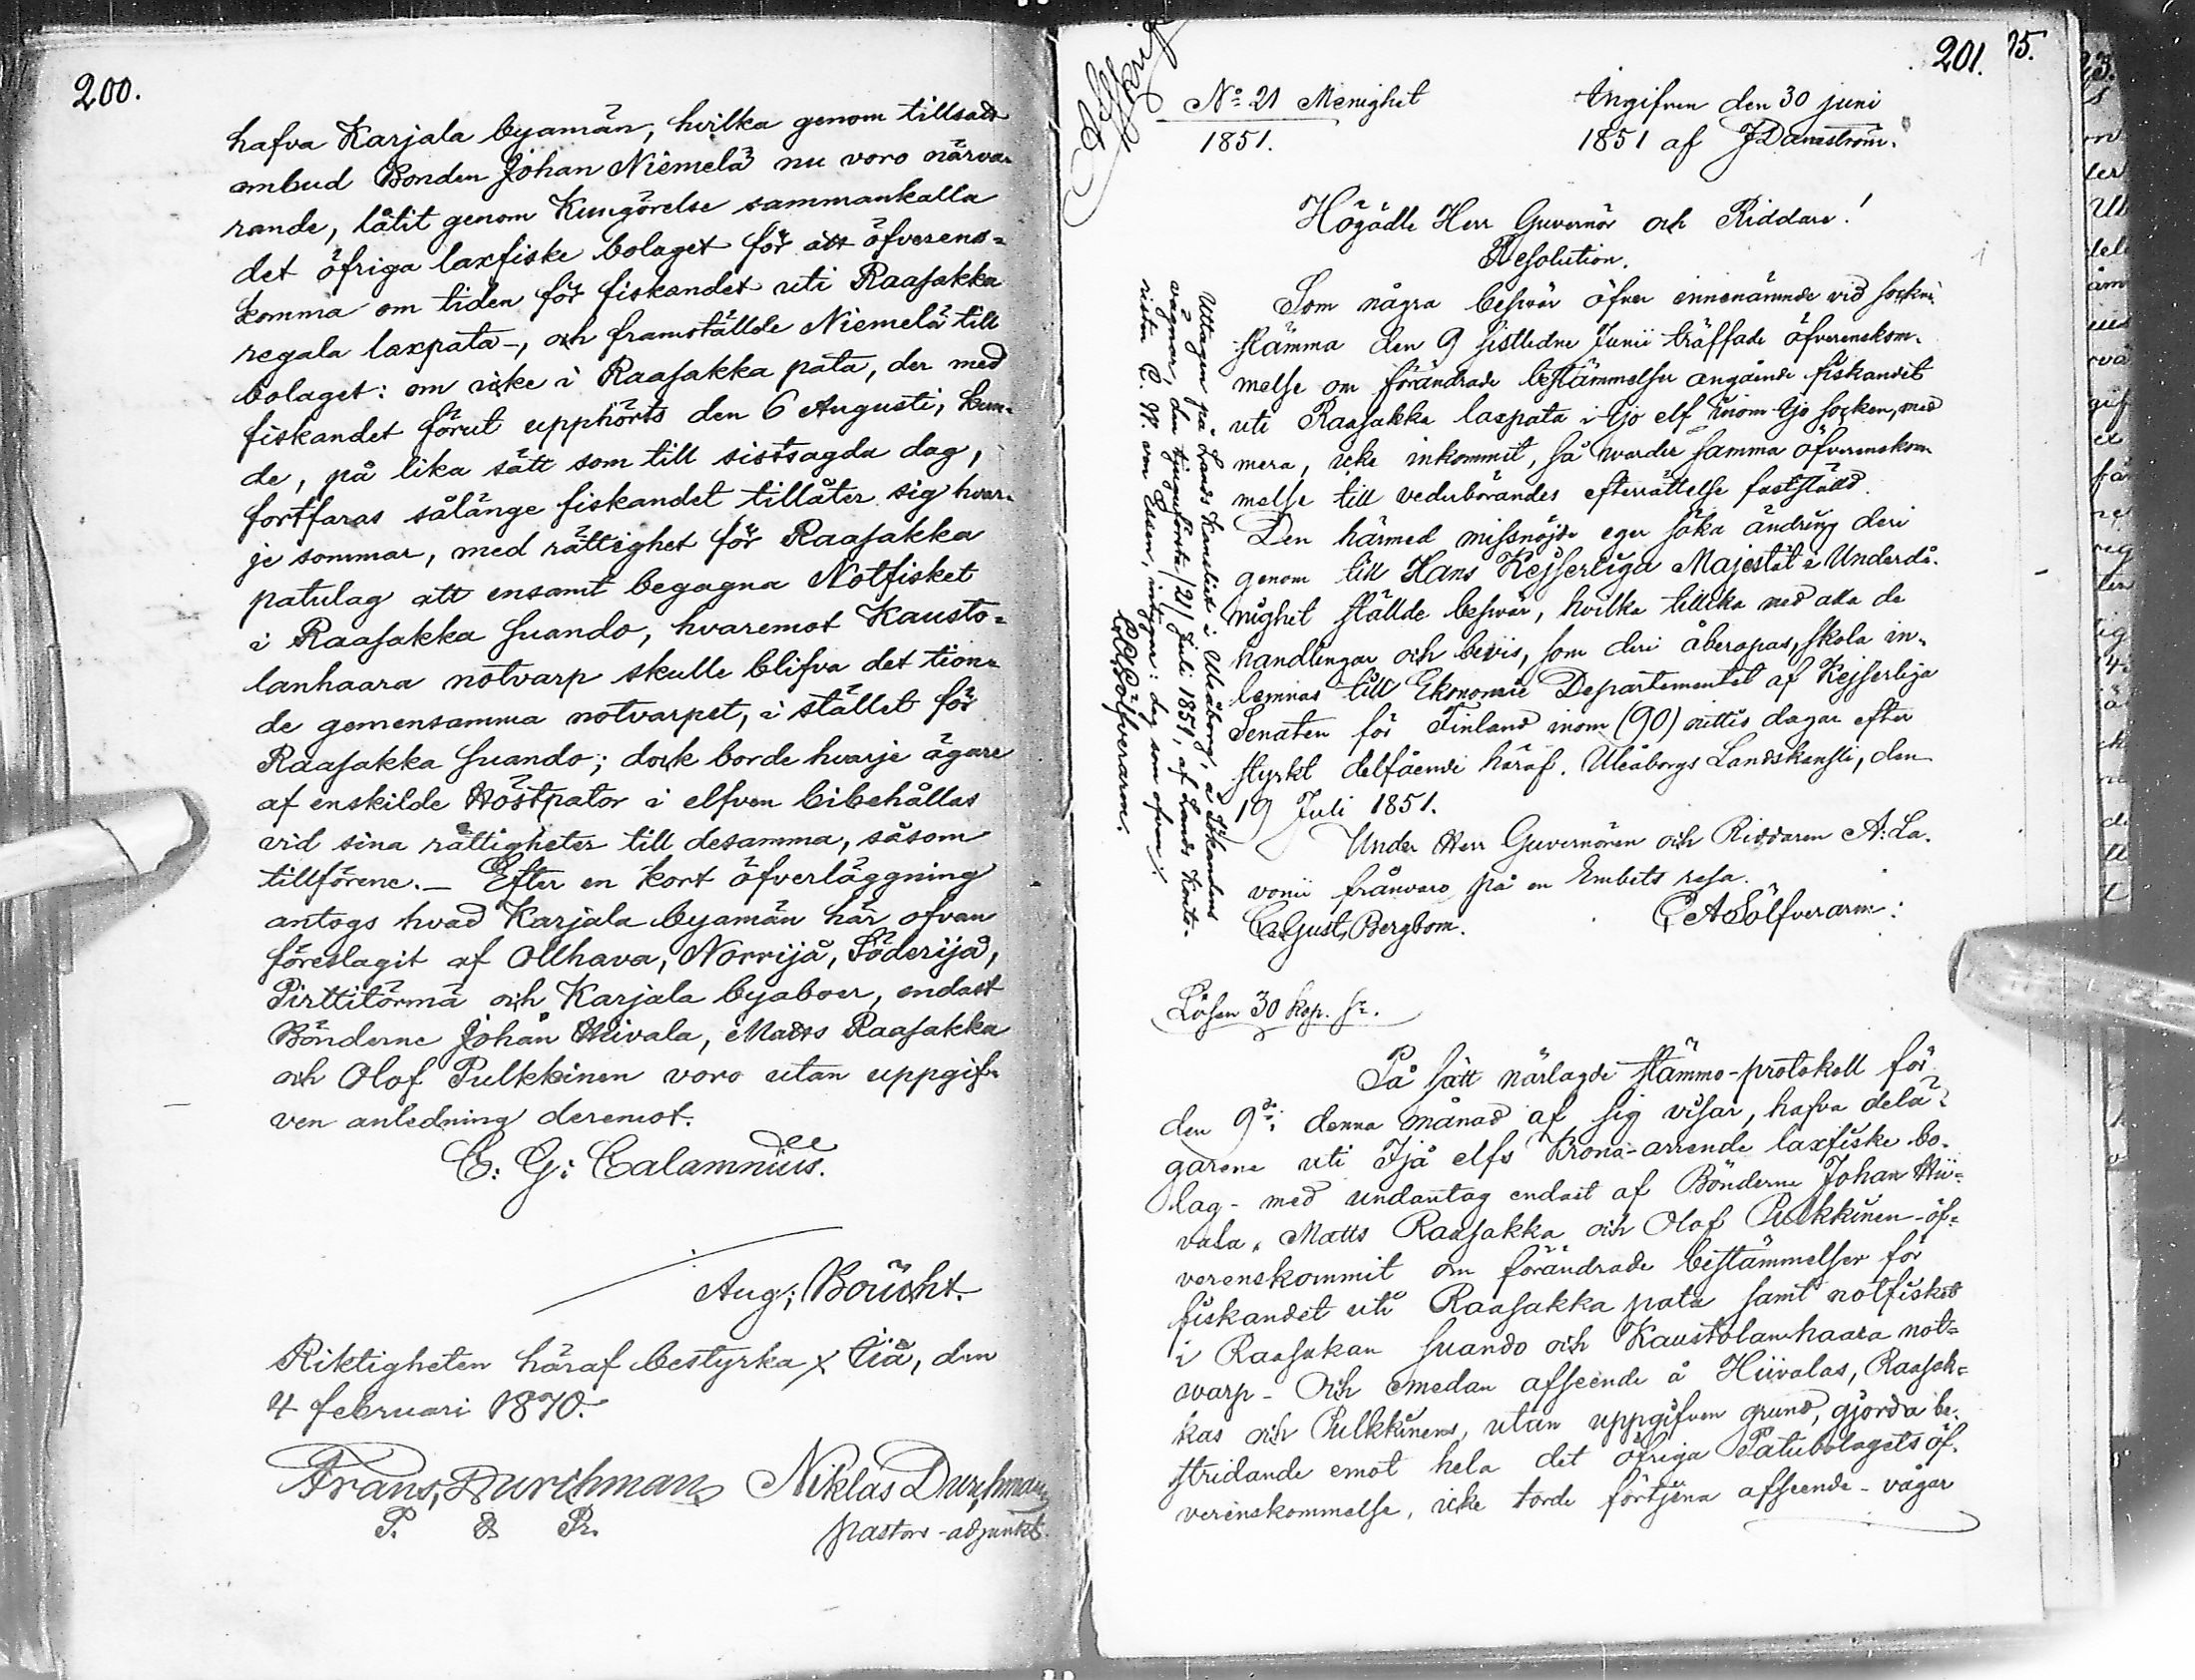 200.
hafva Karjala byamän, hvilka genom tillsatt
ombud Bonden Johan Niemelä nu voro närva-
rande, låtit genom Kungörelse sammankalla
det öfriga laxfiske bolaget för att öfverens-
komma om tiden för fiskandet uti Raasakka
regala laxpata -, och framställde Niemelä till
bolaget: om icke i Raasakka pata, der med
fiskandet förut upphörts den 6 Augusti, kun-
de, på lika sätt som till sistsagda dag,
fortfaras sålänge fiskandet tillåter sig hvar-
je sommar, med rättighet för Raasakka
patulag att ensamt begagna Notfisket
i Raasakka suando, hvaremot Kausto-
lanhaara notvarp skulle blifva det tion-
de gemensamma notvarpet, i stället för
Raasakka suando; dock borde hvarje ägare
af enskilde Höstpator i elfven bibehållas
vid sina rättigheter till desamma, såsom
tillförene. - Efter en kort öfverläggning
antogs hvad Karjala byamän här ofvan
föreslagit af Ollhava, Norrijå, Söderijå,
Pirttitörmä och Karjala byaboer, endast
Bönderne Johan Hiivala, Matts Raasakka
och Olof Pulkkinen voro utan uppgif-
ven anledning deremot.
C: G: Calamnius.
Aug; Boucht.
Riktigheten häraf bestyrka, Iiå, den
4 februari 1870.
Frans Durchman Niklas Durchman
P. & Pr. pastors-adjunkt
201.
Afskrift
No 21 Menighet Ingifven den 30 juni
1851. 1851 af J Danström.
Högädle Herr Guvernör och Riddare!
Resolution.
Som några besvär öfver innenämnde vid sockne
stämma den 9 sistledne Junii träffade öfverenskom-
melse om förändrade bestämmelser angående fiskandet
uti Raasakka laxpata i Ijo elf inom Ijo socken, med
mera, icke inkommit, så warder samma öfverenskom
melse till vederbörandes efterrättelse fastställd.
Den härmed missnöjde eger söka ändring deri
genom till Hans Kejserliga Majestät i Underdå-
nighet ställde besvär, hvilka tillika med alla de
handlingar och bevis, som deri åberopas, skola in-
lemnas till Ekonomie Departementet af Kejserliga
Senaten för Finland inom (90) nittio dagar efter
styrkt delfående häraf. Uleåborgs Landskansli, den
19 Juli 1851.
Under Herr Guvernören och Riddaren A: La-
vonii frånvaro på en Embets resa.
C Gust, Bergbom. C A Sölfverarm:
Uttagen på Lands Kansliet i Uleåborg, å Sökandens
vägnar, den tjuguförsta /21/ Juli 1851, af Lands Konto-
risten C. W. von Essen, intygar: dag som ofvan;
C A Sölfverarm.
Lösen 30 kop. sr.
På sätt närlagde stämmo-protokoll för
den 9de denna månad af sig visar, hafva delä-
garene uti Ijå elfs Krono-arrende laxfiske bo-
lag - med undantag endast af Bönderne Johan Hii-
vala, Matts Raasakka och Olof Pulkkinen - öf-
verenskommit om förändrade bestämmelser för
fiskandet uti Raasakka pata samt notfisket
i Raasakan suando och Kaustolanhaara not-
warp - Och emedan afseende å Hiivalas, Raasak-
kas och Pulkkinens, utan uppgifven grund, gjorda be-
stridande emot hela det öfriga Patubolagets öf-
verinskommelse, icke torde förtjena afseende - vågar